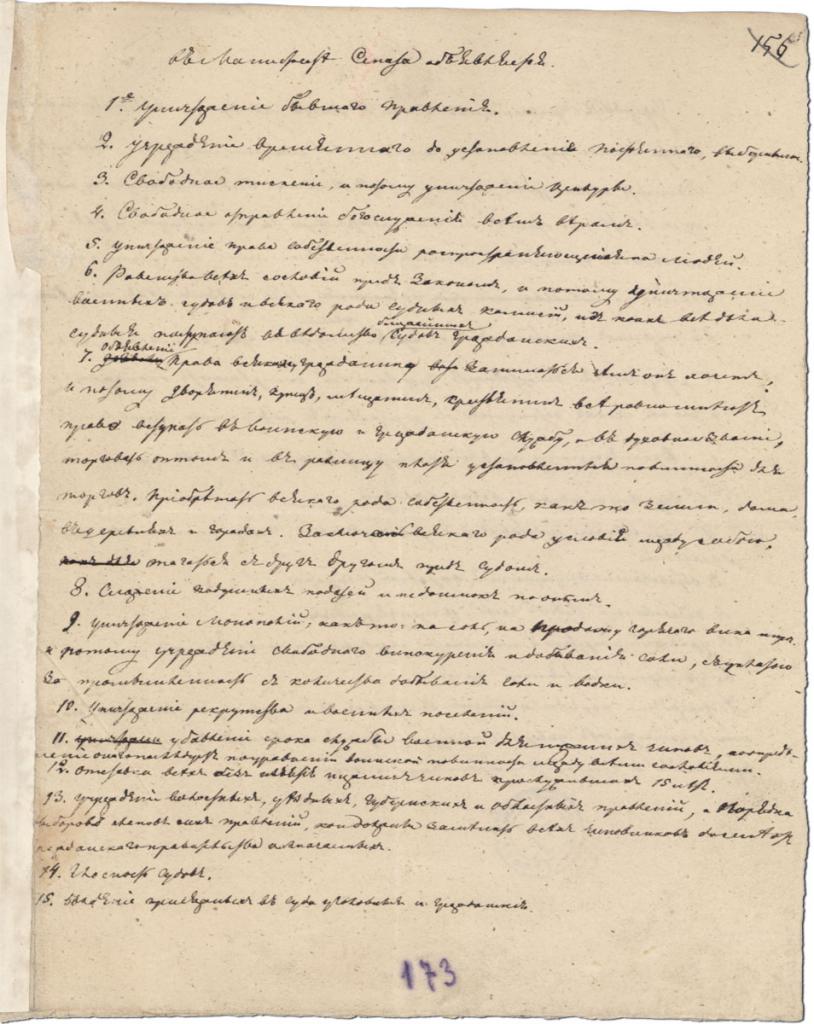 156
въ Манифестѣ Сената объявляется.
1е Уничтоженіе бывшаго Правленія.
2. Учрежденіе временнаго до установленія постояннаго, выборными.
3. Свободное тисненіе, и потому уничтоженіе Цензуры.
4. Свободное отправленіе богослуженія всѣмъ вѣрамъ.
5. Уничтоженіе права собственности распространяющейся на людей.
6. Равенство всѣхъ сословій предъ Закономъ, и потому уничтоженіе
военныхъ судовъ и всякаго рода Судныхъ комиссій, изъ коихъ всѣ дѣла
судныя поступаютъ въ вѣдомство ближайшихъ Судовъ Гражданскихъ.
7. Объявленіе Права всякому гражданину заниматься чѣмъ онъ хочетъ,
и потому дворянинъ, купецъ, мѣщанинъ, крестьянинъ всѣ равно имѣютъ
право вступать въ воинскую и гражданскую службу, и въ духовное званіе,
торговать оптомъ и въ розницу платя установленныя повинности для
торговъ. Пріобрѣтать всякаго рода собственность, какъ то земли, дома
въ деревняхъ и городахъ. Заключать всякаго рода условія между собою,
тягаться съ другъ другомъ предъ Судомъ.
8. Сложеніе подушныхъ податей и недоимокъ по онымъ.
9. Уничтоженіе Монополій; какъ то: на соль, на продажу горячаго вина и проч.
и потому учрежденіе свободнаго винокуренія и добыванія соли, съ уплатою
за промышленность съ количества добыванія соли и водки.
10. Уничтоженіе рекрутства и военныхъ поселеній.
11. убавленіе срока службы военной для нижнихъ чиновъ, и опредѣ-
леніе онаго послѣдуетъ по уравненіи воинской повинности между всѣми сословіями.
12. Отставка всѣхъ безъ изъятія нижнихъ чиновъ прослужившихъ 15 лѣтъ.
13. Учрежденіе волостныхъ, уѣздныхъ, Губернскихъ и областныхъ правленій, и порядка
выборовъ членовъ сихъ правленій, кои должны замѣнить всѣхъ чиновниковъ доселѣ отъ
гражданскаго правительства назначаемыхъ.
14. Гласность Судовъ.
15. Введеніе присяжныхъ въ суды уголовные и гражданскіе.
173